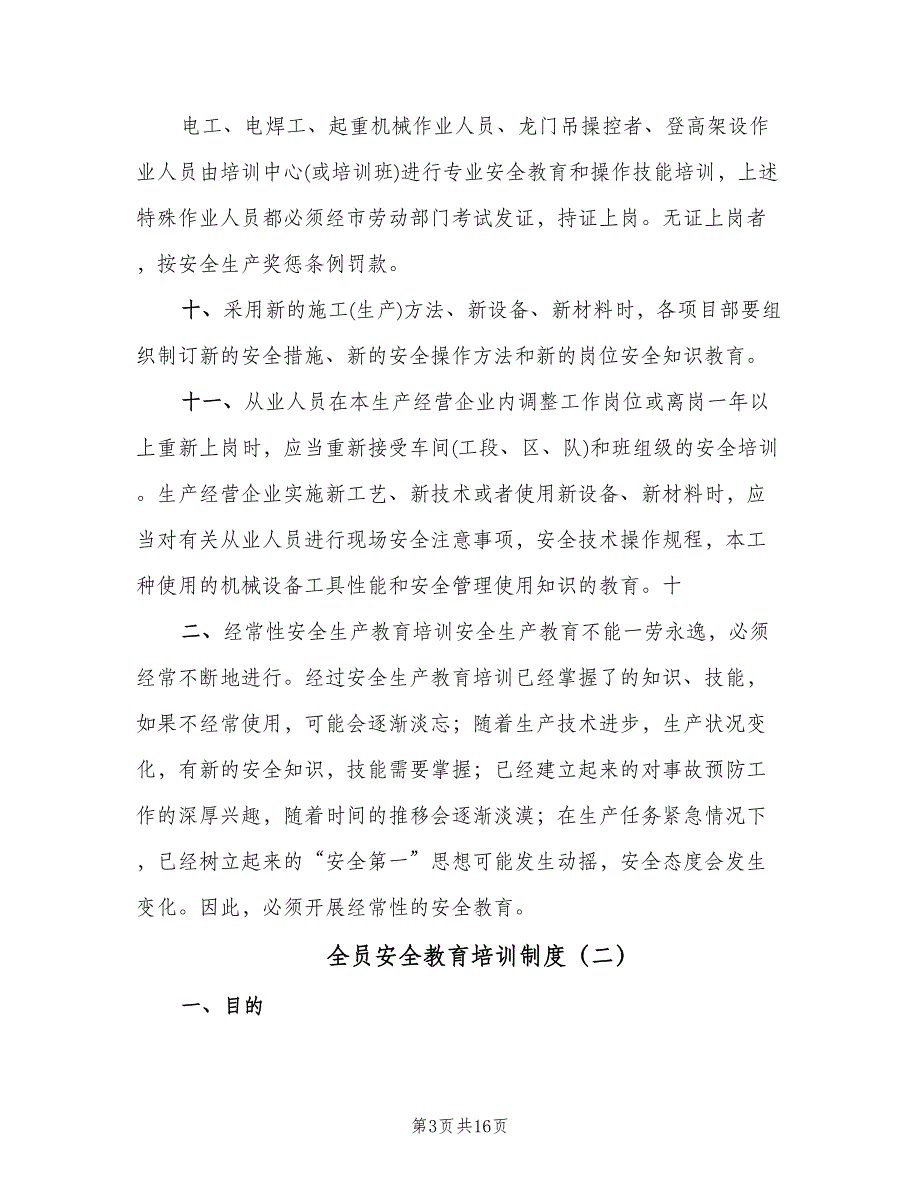 电工、电焊工、起重机械作业人员、龙门吊操控者、登高架设作
业人员由培训中心(或培训班)进行专业安全教育和操作技能培训，上述
特殊作业人员都必须经市劳动部门考试发证，持证上岗。无证上岗者
，按安全生产奖惩条例罚款。
十、采用新的施工(生产)方法、新设备、新材料时，各项目部要组
织制订新的安全措施、新的安全操作方法和新的岗位安全知识教育。
十一、从业人员在本生产经营企业内调整工作岗位或离岗一年以
上重新上岗时，应当重新接受车间(工段、区、队)和班组级的安全培训
。生产经营企业实施新工艺、新技术或者使用新设备、新材料时，应
当对有关从业人员进行现场安全注意事项，安全技术操作规程，本工
种使用的机械设备工具性能和安全管理使用知识的教育。十
二、经常性安全生产教育培训安全生产教育不能一劳永逸，必须
经常不断地进行。经过安全生产教育培训已经掌握了的知识、技能，
如果不经常使用，可能会逐渐淡忘；随着生产技术进步，生产状况变
化，有新的安全知识，技能需要掌握；已经建立起来的对事故预防工
作的深厚兴趣，随着时间的推移会逐渐淡漠；在生产任务紧急情况下
，已经树立起来的“安全第一”思想可能发生动摇，安全态度会发生
变化。因此，必须开展经常性的安全教育。
全员安全教育培训制度（二）
一、目的
第3页共16页